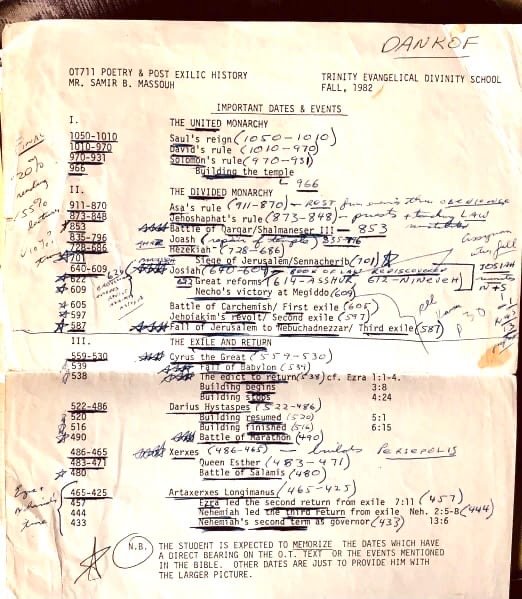 DANKOF
OT711 POETRY & POST EXILIC HISTORY TRINITY EVANGELICAL DIVINITY SCHOOL
MR. SAMIR B. MASSOUH FALL, 1982
IMPORTANT DATES & EVENTS
I. THE UNITED MONARCHY
1050-1010 Saul's reign (1050-1010)
1010-970 David's rule (1010-970)
970-931 Solomon's rule (970-931)
966 Building the temple
966
II. THE DIVIDED MONARCHY
911-870 Asa's rule (911-870)
873-848 Jehoshaphat's rule (873-848) - priests LAW
853 Battle of Qarqar/Shalmaneser III - 853
835-796 Joash (repair of temple) 835-796
728-686 Hezekiah (728-686)
701 Siege of Jerusalem/Sennacherib (701)
640-609 Josiah (640-609) BOOK OF LAW REDISCOVERED
622 622 Great reforms (614-ASSHUR, 612-NINEVEH) JOSIAH
609 Necho's victory at Megiddo (609)
605 Battle of Carchemish/ First exile (605)
597 Jehoiakim's revolt/ Second exile (597)
587 Fall of Jerusalem to Nebuchadnezzar/ Third exile (587)
III. THE EXILE AND RETURN
559-530 Cyrus the Great (559-530)
539 Fall of Babylon (539)
538 The edict to return (538) cf. Ezra 1:1-4.
Building begins 3:8
Building stops 4:24
522-486 Darius Hystaspes (522-486)
520 Building resumed (520) 5:1
516 Building finished (516) 6:15
490 Battle of Marathon (490)
486-465 Xerxes (486-465) - builds PERSEPOLIS
483-471 Queen Esther (483-471)
480 Battle of Salamis (480)
465-425 Artaxerxes Longimanus (465-425)
457 Ezra led the second return from exile 7:11 (457)
444 Nehemiah led the third return from exile Neh. 2:5-8 (444)
433 Nehemiah's second term as governor (433) 13:6
N.B. THE STUDENT IS EXPECTED TO MEMORIZE THE DATES WHICH HAVE
A DIRECT BEARING ON THE O.T. TEXT OR THE EVENTS MENTIONED
IN THE BIBLE. OTHER DATES ARE JUST TO PROVIDE HIM WITH
THE LARGER PICTURE.